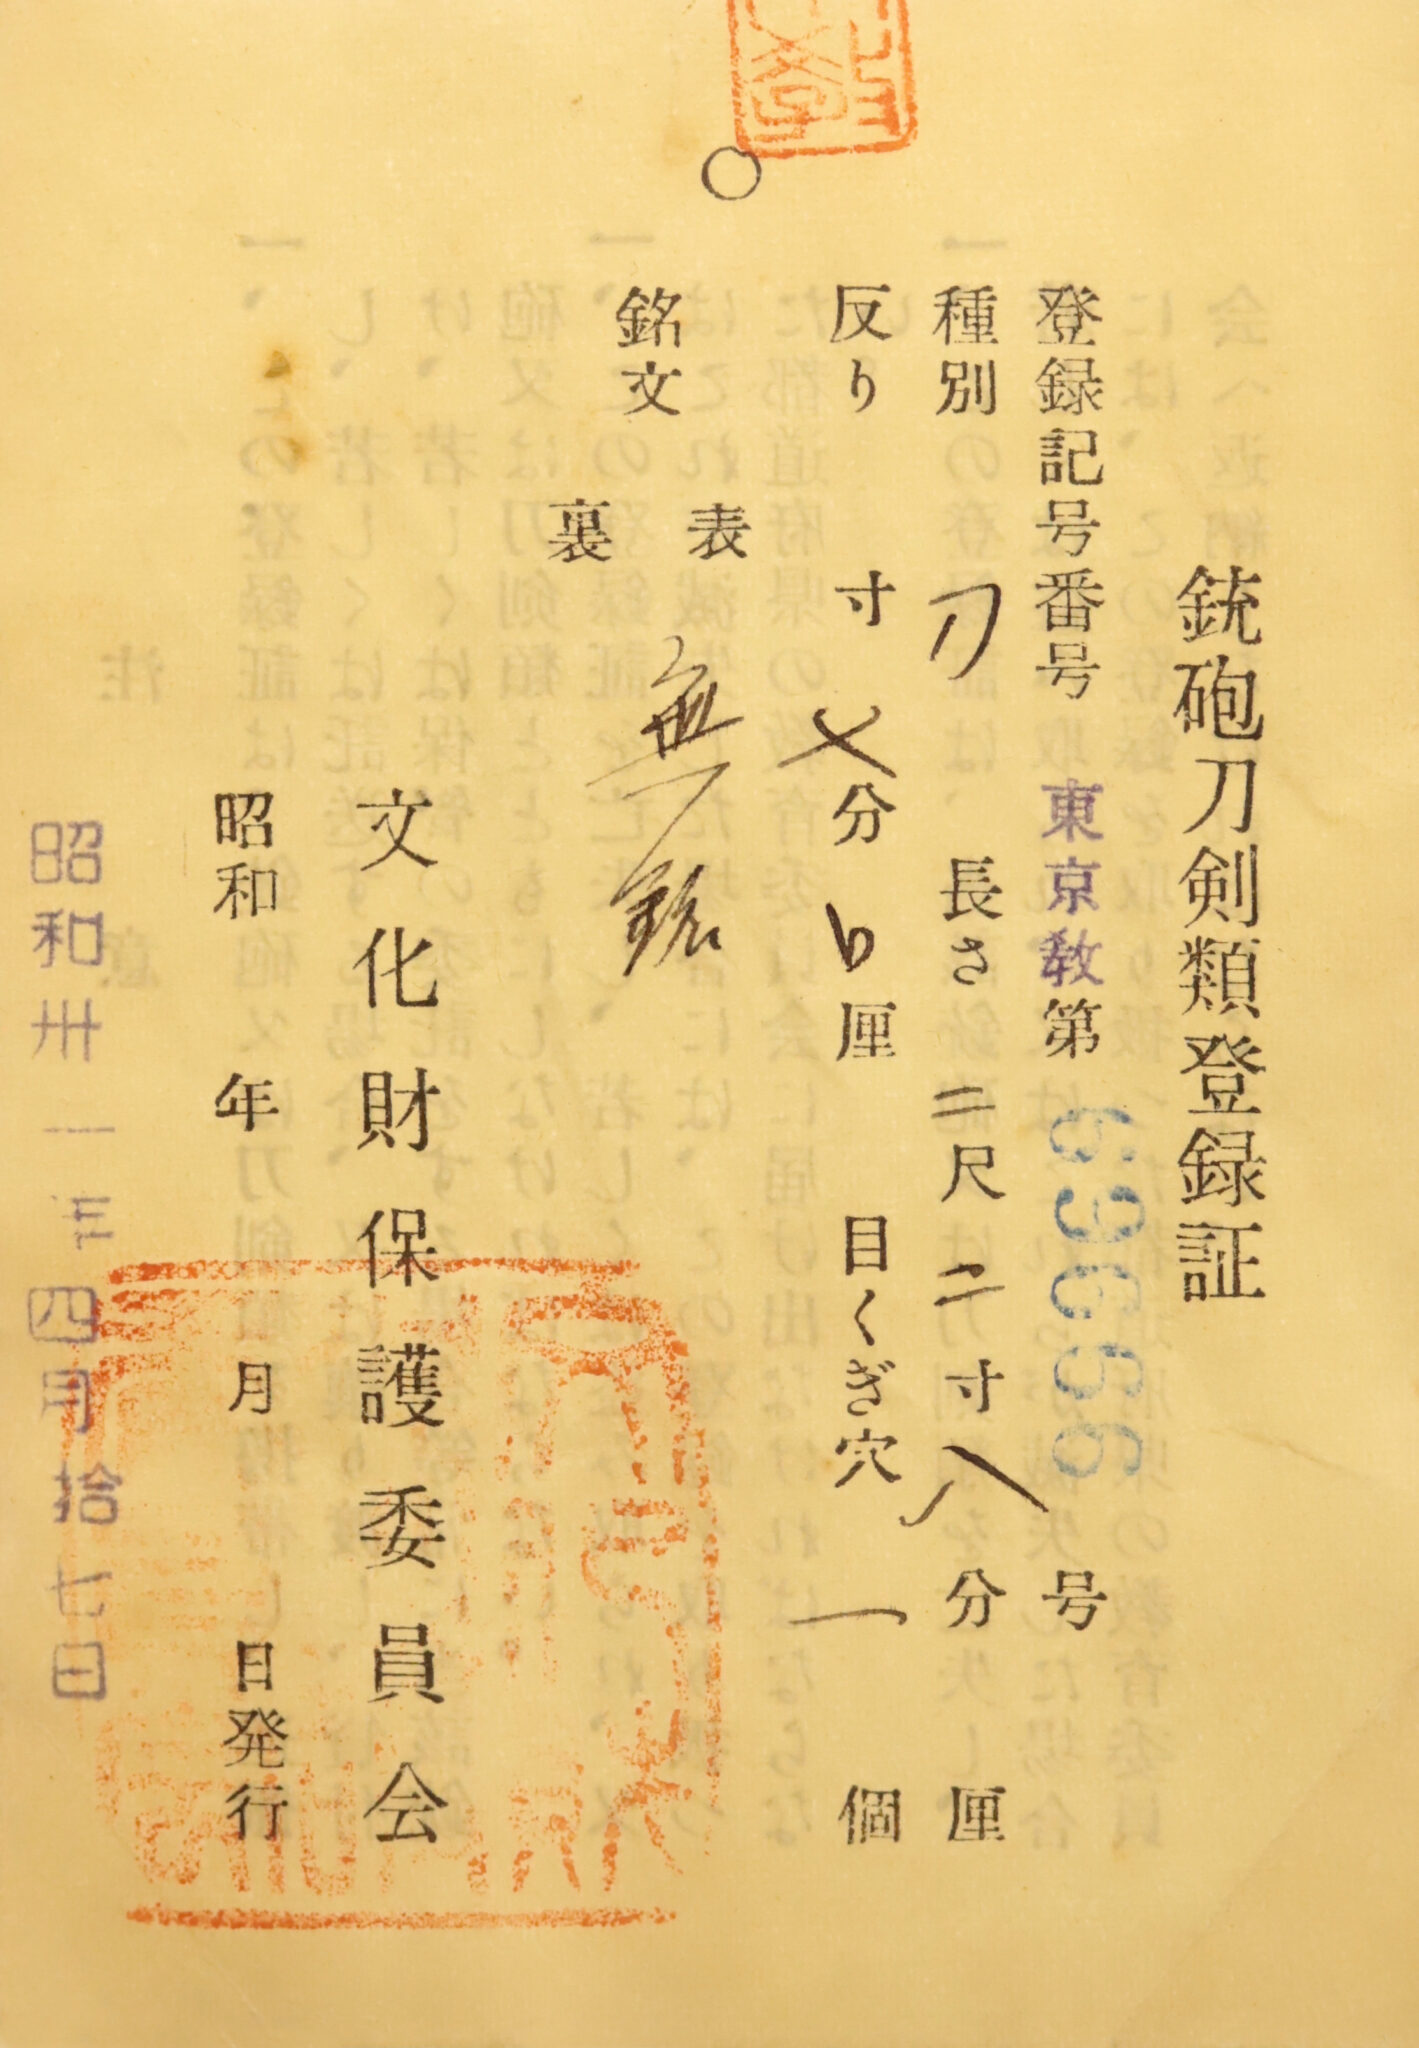 銃砲刀剣類登録証
登録記号番号 東京教第 号
種別 刀 長さ 二尺二寸八分 厘
反り 寸 分 厘 目くぎ穴 一 個
銘文 表 無銘
裏
文化財保護委員会
昭和 年 月 日発行
昭和卅一年四月拾七日